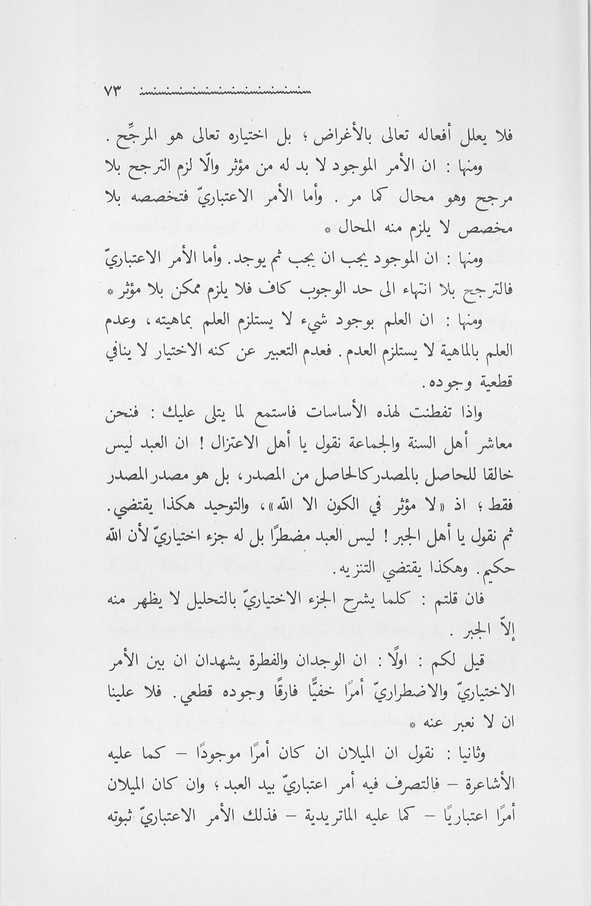 ٧٣
فلا يعلل أفعاله تعالى بالأغراض ؛ بل اختياره تعالى هو المرجِّح .
ومنها : ان الأمر الموجود لا بد له من مؤثر والّا لزم الترجح بلا
مرجح وهو محال كما مر . وأما الأمر الاعتباريّ فتخصصه بلا
مخصص لا يلزم منه المحال *
ومنها : ان الموجود يجب ان يجب ثم يوجد. وأما الأمر الاعتباريّ
فالترجح بلا انتهاء الى حد الوجوب كاف فلا يلزم ممكن بلا مؤثر *
ومنها : ان العلم بوجود شيء لا يستلزم العلم بماهيته، وعدم
العلم بالماهية لا يستلزم العدم. فعدم التعبير عن كنه الاختيار لا ينافي
قطعية وجوده.
واذا تفطنت لهذه الأساسات فاستمع لما يتلى عليك : فنحن
معاشر أهل السنة والجماعة نقول يا أهل الاعتزال ! ان العبد ليس
خالقا للحاصل بالمصدر كالحاصل من المصدر، بل هو مصدر المصدر
فقط ؛ اذ «لا مؤثر في الكون الا الله»، والتوحيد هكذا يقتضي.
ثم نقول يا أهل الجبر ! ليس العبد مضطرًا بل له جزء اختياريّ لأن الله
حكيم. وهكذا يقتضي التنزيه.
فان قلتم : كلما يشرح الجزء الاختياريّ بالتحليل لا يظهر منه
إلاّ الجبر .
قيل لكم : اولًا : ان الوجدان والفطرة يشهدان ان بين الأمر
الاختياريّ والاضطراريّ أمرًا خفيًّا فارقًا وجوده قطعي. فلا علينا
ان لا نعبر عنه *
وثانيا : نقول ان الميلان ان كان أمرًا موجودًا – كما عليه
الأشاعرة – فالتصرف فيه أمر اعتباريّ بيد العبد ؛ وان كان الميلان
أمرًا اعتباريًا – كما عليه الماتريدية – فذلك الأمر الاعتباريّ ثبوته